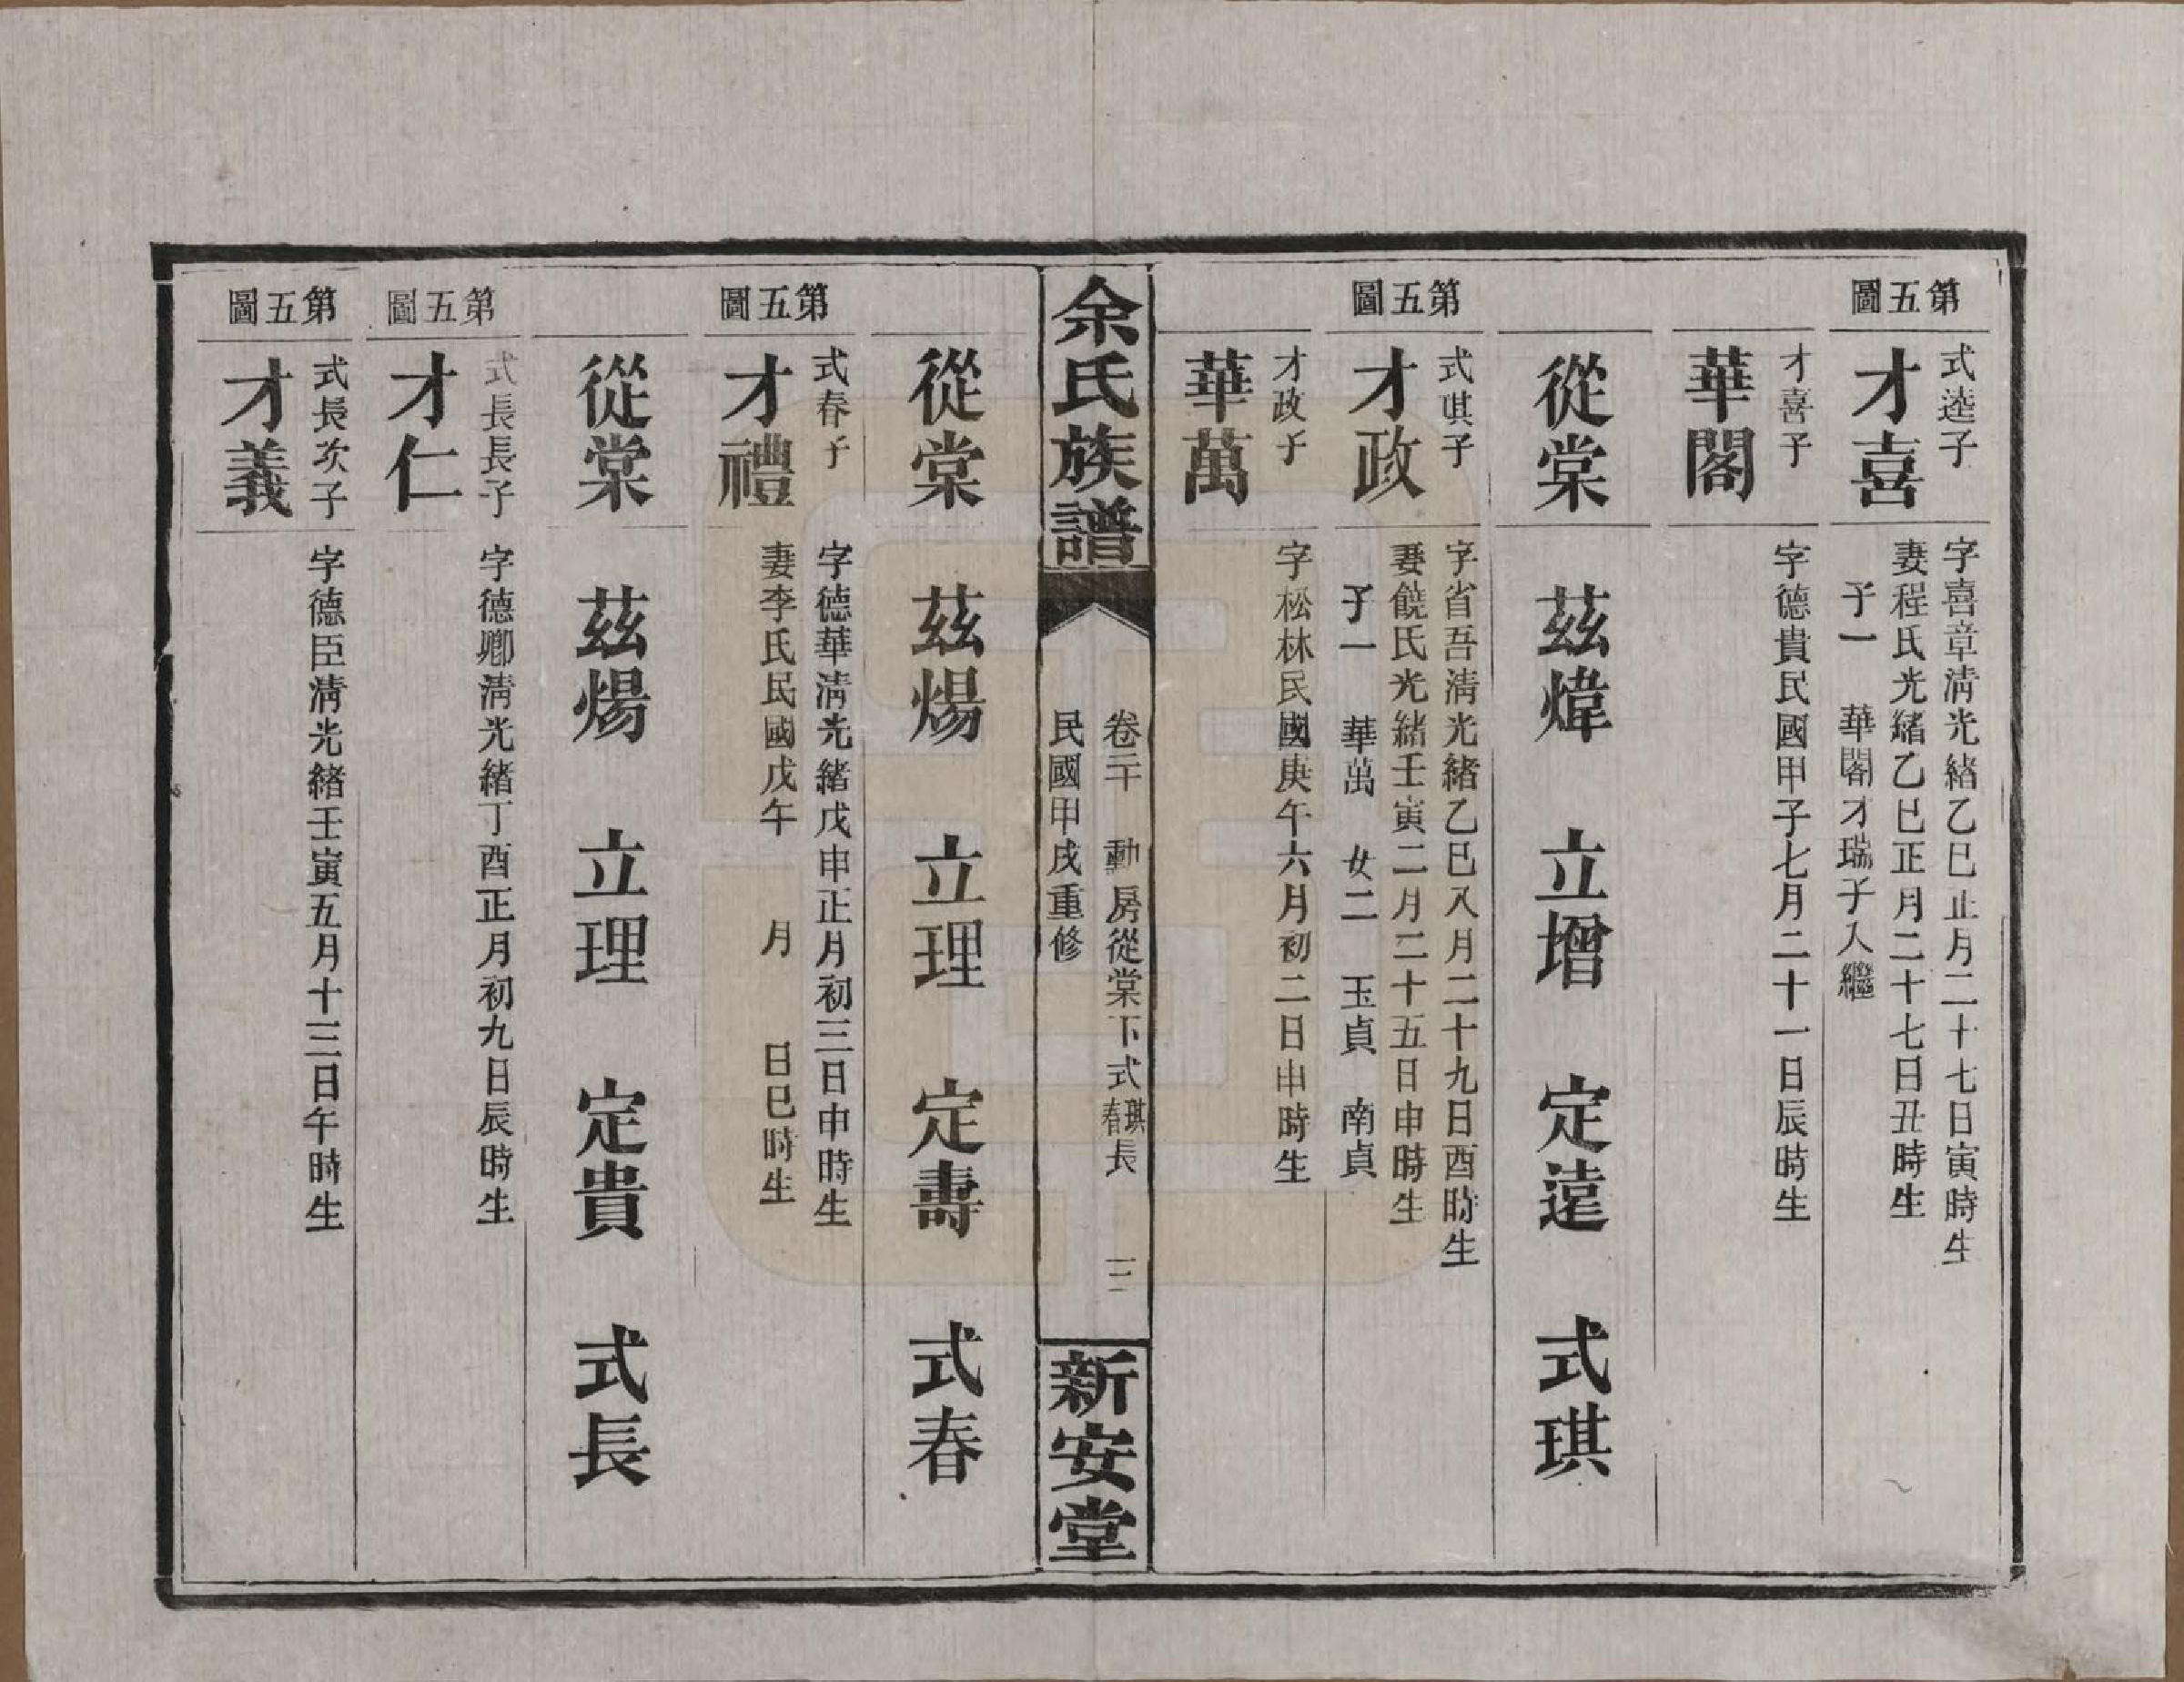 第五圖
式逵子
才喜
字喜章清光緒乙巳正月二十七日寅時生
妻程氏光緒乙巳正月二十七日丑時生
子一 華閣才瑞子入繼
才喜子
華閣
字德貴民國甲子七月二十一日辰時生
從棠 茲煒 立增 定遠 式琪
第五圖
式琪子
才政
字省吾清光緒乙巳八月二十九日酉時生
妻饒氏光緒壬寅二月二十五日申時生
子一 華萬 女二 玉貞 南貞
才政子
華萬
字松林民國庚午六月初二日申時生
余氏族譜
卷二十 動房從棠下式琪春長 三
民國甲戌重修
新安堂
從棠 茲煬 立理 定壽 式春
第五圖
式春子
才禮
字德華清光緒戊申正月初三日申時生
妻李氏民國戊午 月 日巳時生
從棠 茲煬 立理 定貴 式長
第五圖
式長長子
才仁
字德卿清光緒丁酉正月初九日辰時生
第五圖
式長次子
才義
字德臣清光緒壬寅五月十三日午時生